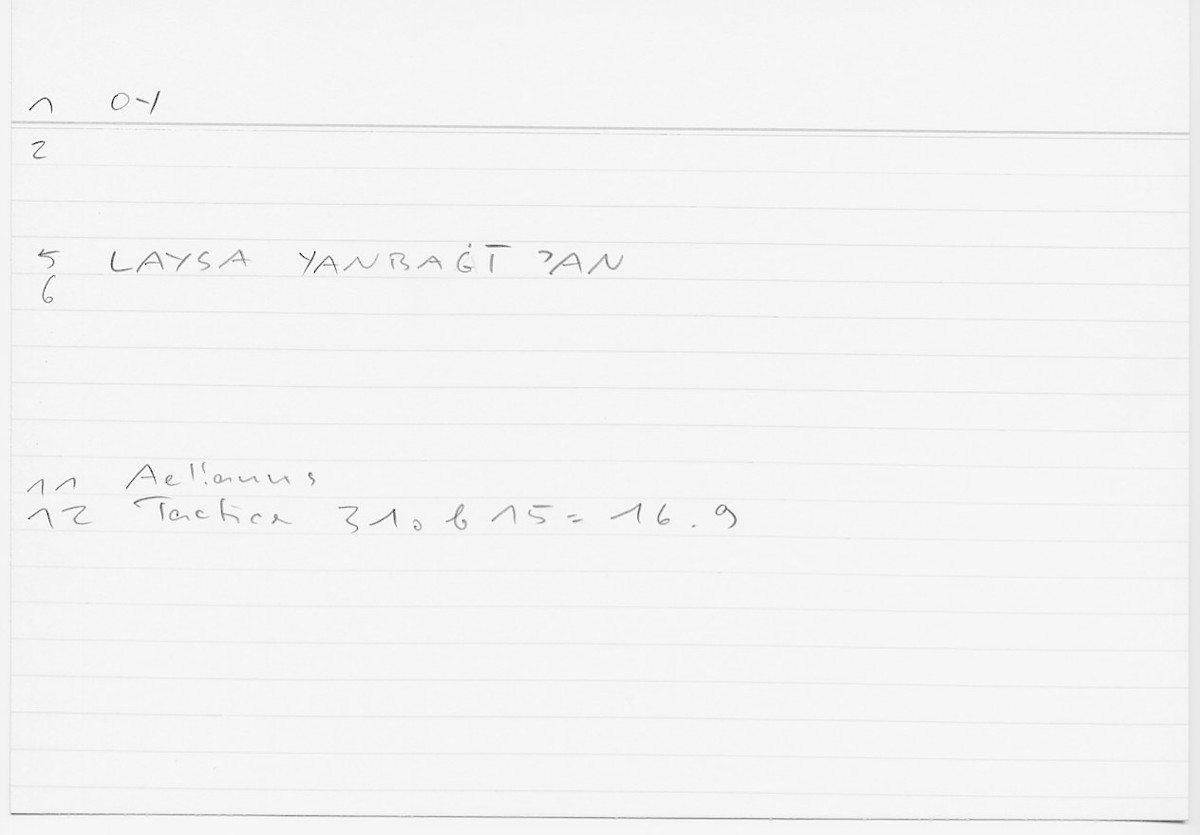 1 OY
2
5 LAYSA YANBAĠĪ ʾAN
6
11 Aelianus
12 Tactica 310 b 15 = 16.9